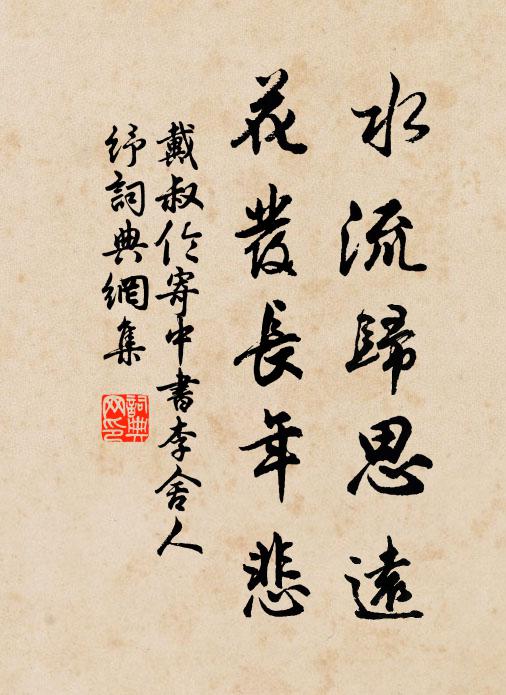 水流歸思遠
花發長年悲
戴叔伦寄中書李舍人
纾詞典網集
詞典網印